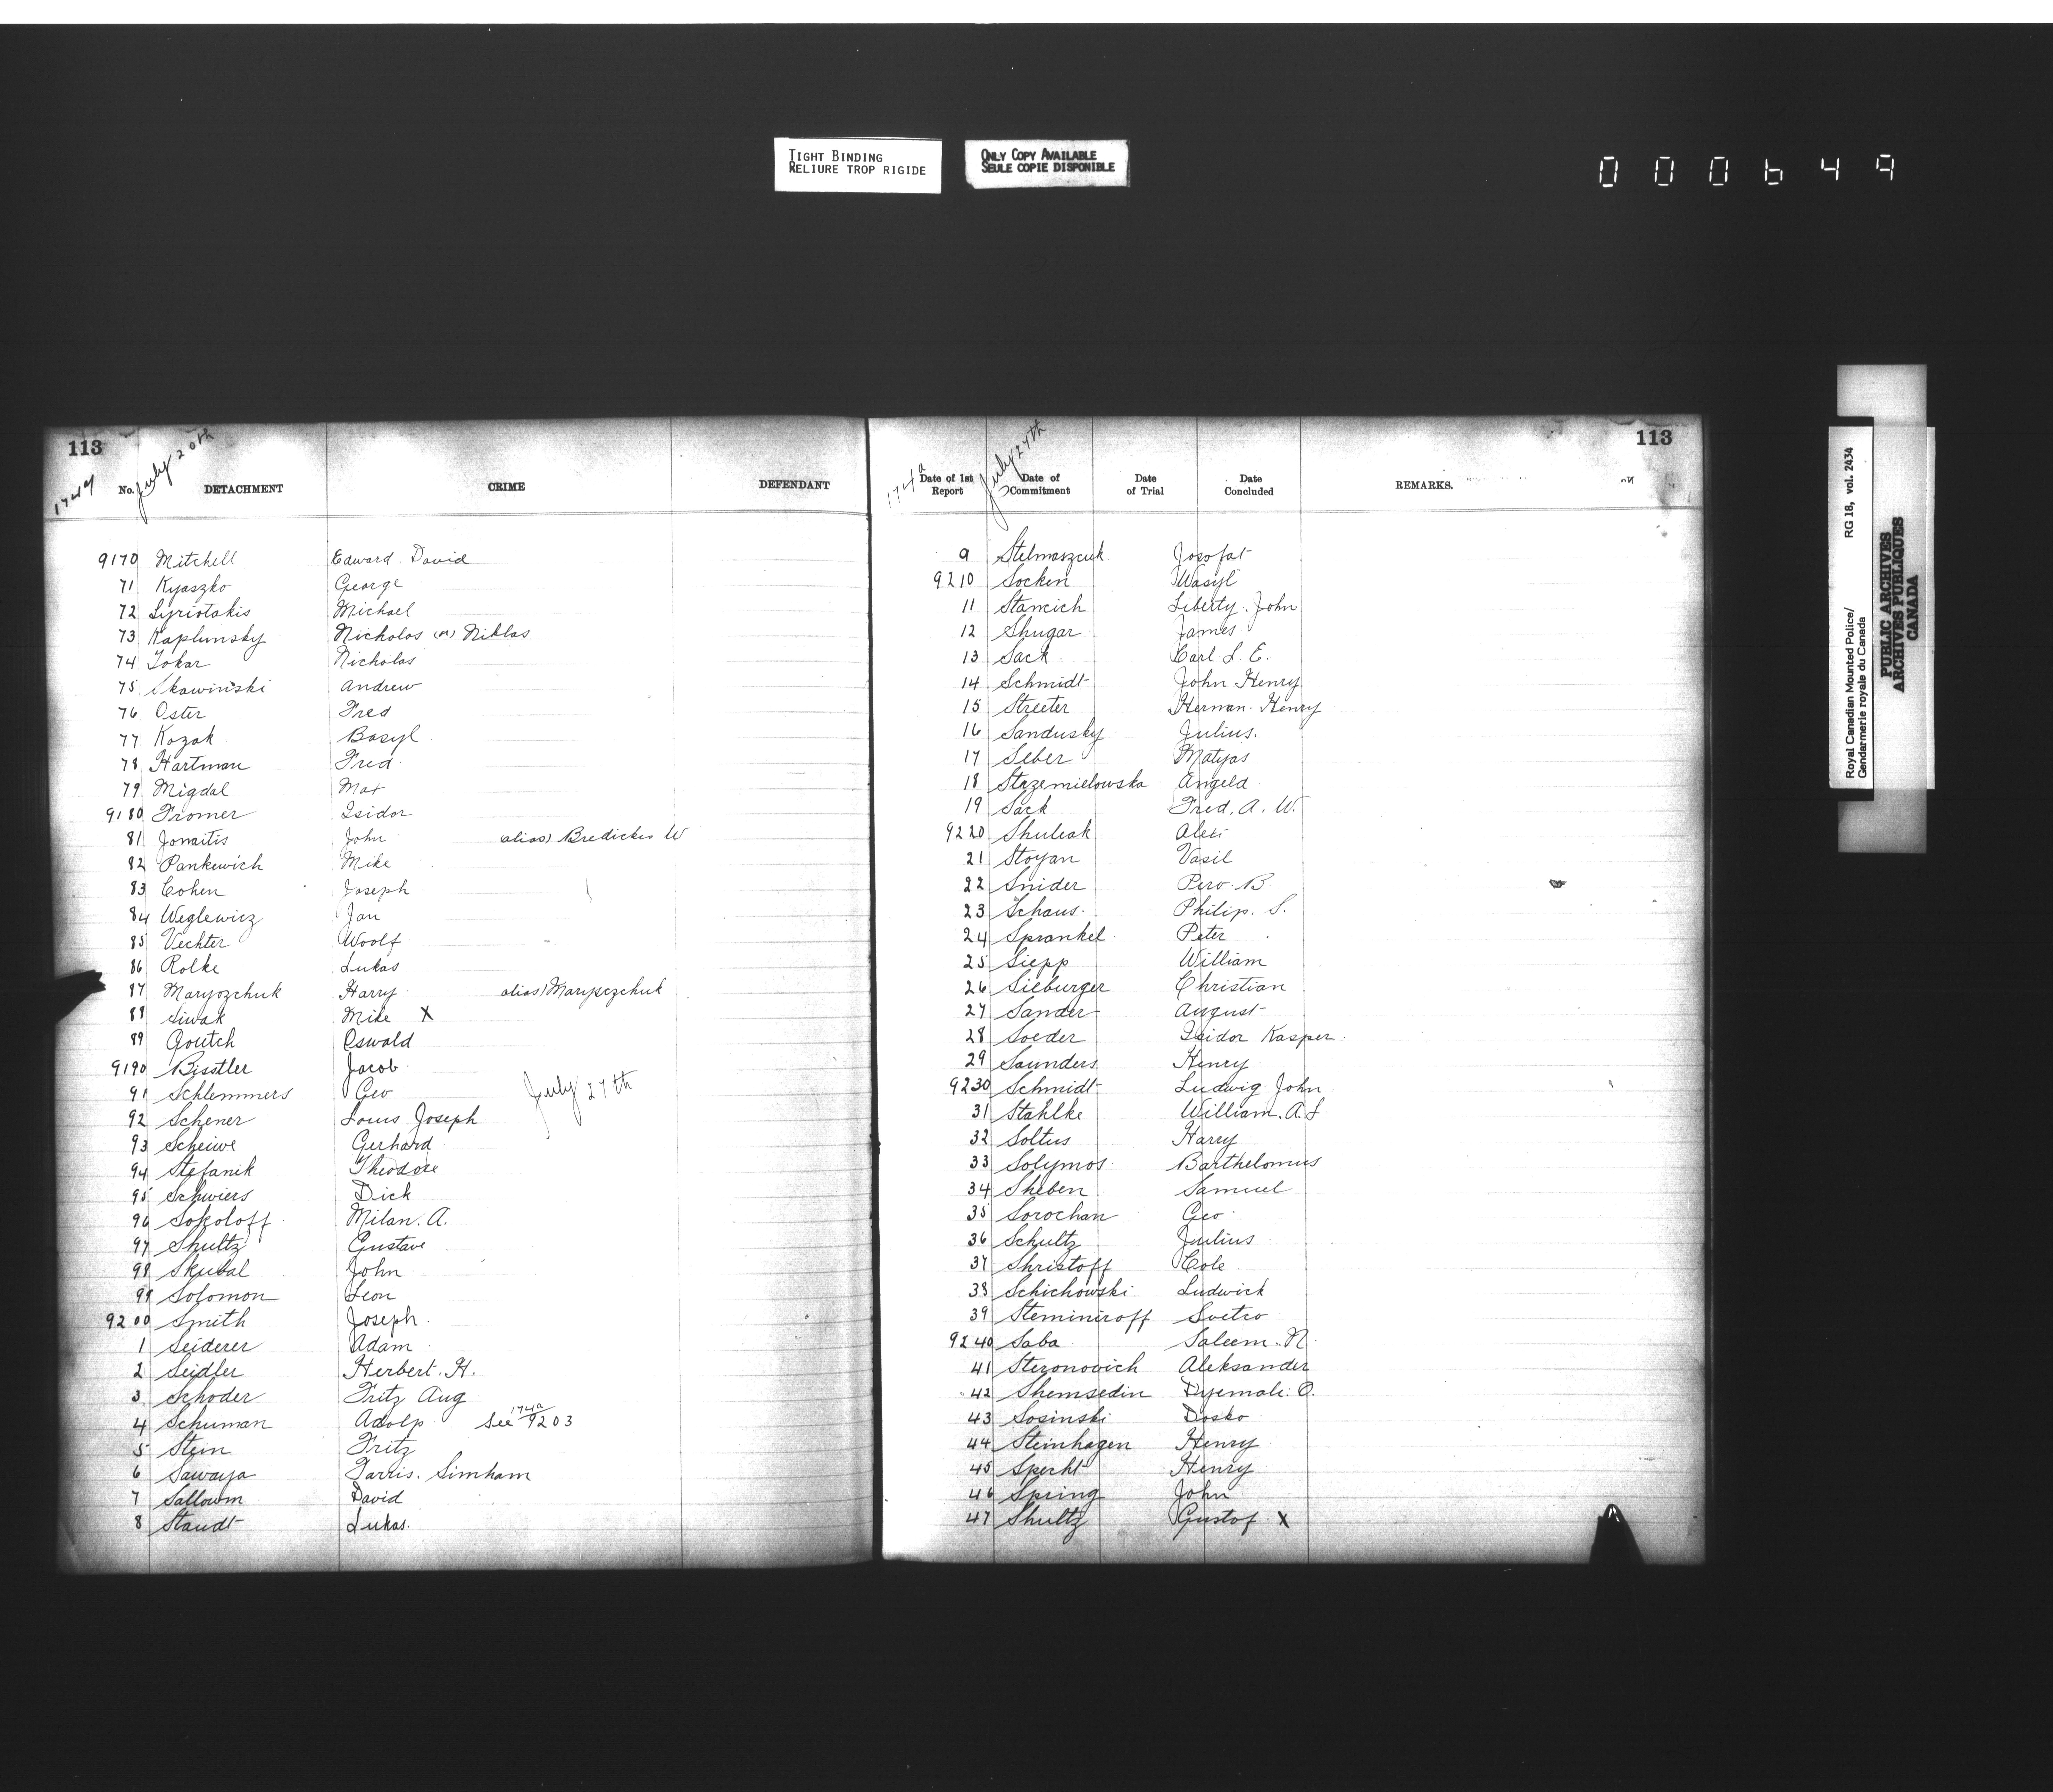 TIGHT BINDING
RELIURE TROP RIGIDE
ONLY COPY AVAILABLE
SEULE COPIE DISPONIBLE
000649
113
July 20th
No. DETACHMENT CRIME DEFENDANT
9170 Mitchell Edward. David
71 Kyaszko George
72 Lyriotakis Michael
73 Kaplunsky Nicholas (or) Niklas
74 Tokar Nicholas
75 Skawinski Andrew
76 Oster Fred
77 Kozak Basyl
78 Hartman Fred
79 Migdal Max
9180 Fromer Isidor
81 Jonaitis John alias) Bredickis W
82 Pankewich Mike
83 Cohen Joseph
84 Weglewicz Jan
85 Vechter Woolf
86 Rolke Lukas
87 Maryozchuk Harry alias)
88 Siwak Mike X
89 Goutch Oswald
9190 Bisstler Jacob
91 Schlemmers Geo July 27th
92 Schener Louis Joseph
93 Scheiwe Gerhard
94 Stefanik Theodore
95 Schwiers Dick
96 Sokoloff Milan. A.
97 Shultz Gustave
98 Skubal John
99 Solomon Leon
9200 Smith Joseph.
1 Seiderer Adam
2 Seidler Herbert. H.
3 Schoder Fritz Aug
4 Schuman Adolp See 174a/9203
5 Stein Fritz
6 Sawaya Farris. Simham
7 Salloum David
8 Staudt Lukas.
113
174a
July 27th
Date of 1st Report Date of Commitment Date of Trial Date Concluded REMARKS.
9 Stelmaszcuk Josofat
9210 Socken Wasyl
11 Stancich Liberty. John
12 Shugar James
13 Sack Carl. L. E.
14 Schmidt John Henry
15 Streeter Herman. Henry
16 Sandusky Julius.
17 Seber Matyas
18 Strzemielowska Angela
19 Sack Fred. A. W.
9220 Shuleak Alexi
21 Stoyan Vasil
22 Snider Pero. B.
23 Schaus. Philip. S.
24 Sprankel Peter
25 Siepp William
26 Sieburger Christian
27 Sander August
28 Soeder Isidor Kasper
29 Saunders Henry
9230 Schmidt Ludwig John
31 Stahlke William. A. L
32 Soltus Harry
33 Solymos Barthelomus
34 Sheben Samuel
35 Sorochan Geo
36 Schultz Julius
37 Shristoff Cole
38 Schichowski Ludwick
39 Steminiroff Svetco
9240 Saba Saleem. N.
41 Stezonovich Aleksander
42 Shemsedin Dyemale. O.
43 Sosinski Dosko
44 Steinhagen Henry
45 Specht Henry
46 Spring John
47 Shultz Gustof X
Royal Canadian Mounted Police/ RG 18, vol. 2434
Gendarmerie royale du Canada
PUBLIC ARCHIVES
ARCHIVES PUBLIQUES
CANADA